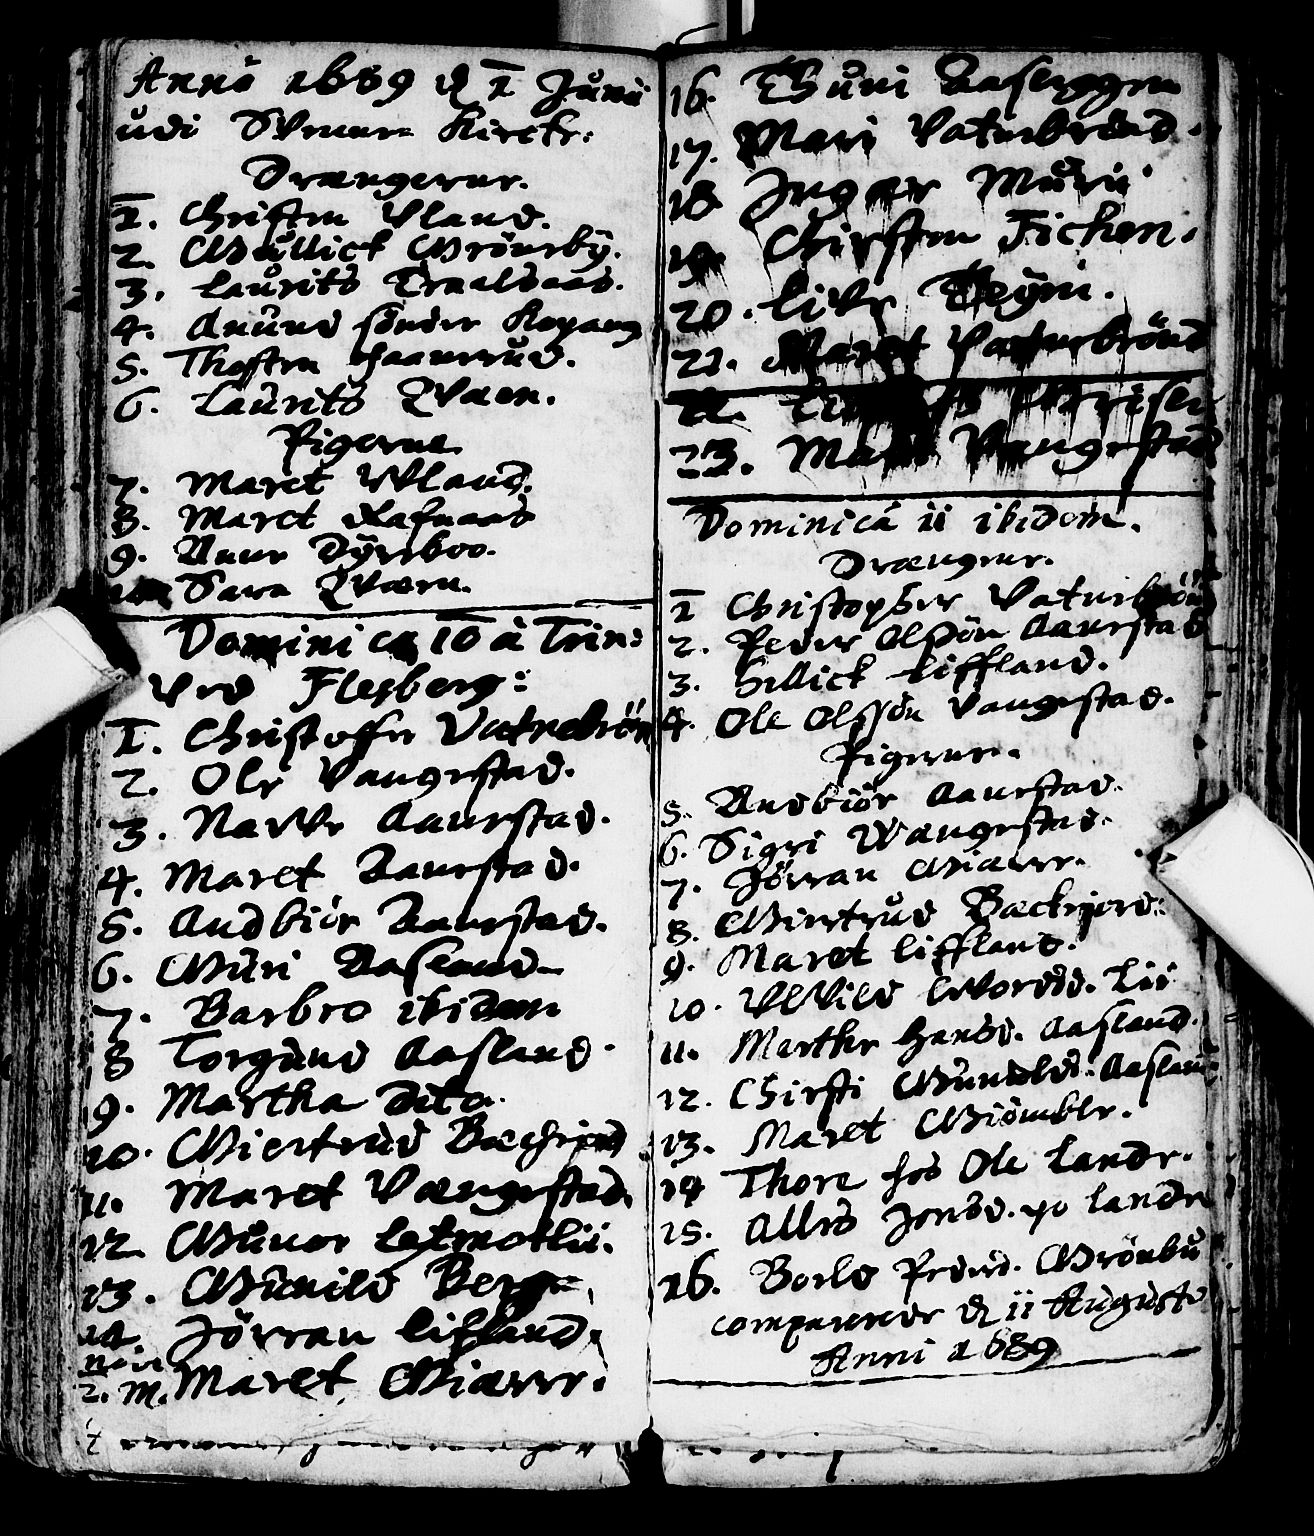 Anno 1689 d. 1 Junii
udi Svenne Kircke:
Drængerne.
1. Christen Uland.
2. Gullick Grönsby.
3. Laurits Traaldaas.
4. Anund sönder
5. Thosten Haanerud.
6. Laurits Qværn.
Pigerne
7. Maret Uland.
8. Maret Rafnaas
9. Anne Dyreboe.
10. Sara Qværn.
Dominica 10 à Trin:
ved Flesberg:
1. Christoffer Vatnebrön
2. Ole Vangestad.
3. Narve Aaurstad.
4. Maret Aaurstad.
5. Audbiör Aaurstad.
6. Guri Aasland
7. Barbro ibidem
8 Torgund Aasland.
9. Martha dito.
10. Giertrud
11. Maret Vangestad.
12. Gunor
13. Gunild Berge.
14. Jörran Liffland.
2. M. Maret Giærre.
16. Thuri Aaseggen
17. Mari Vatnebrönd.
18 Ingær Muri
19. Chirsten Fichen.
20. Live Tegni.
21. Maret Vatnebrönd
22.
23. Mari Vangestad
Dominicâ ii ibidem.
Drængene.
1 Christopher Vatnebrön
2. Peder Olssön Aaurstad
3. Gullick Liffland.
4. Ole Olssön Vangestad.
Pigerne.
5. Audbiör Aaurstad.
6. Sigri Wangestad.
7. Jörran Giærre.
8. Giertrud Bæckiord:
9. Maret Liffland.
10. Lii
11. Marthe Hansd. Aasland.
12. Chirsti Gunulds. Aasland
13. Maret Giömble.
14 Thore hos Ole Lande.
15. Alles Jonsd. po Lande
16. Borild Peders. Grönbu
comparerer d. ii Augusti
Anni 1689